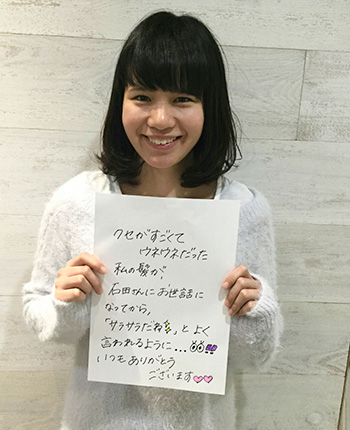 クセがすごくて
ウネウネだった
私の髪が、
石田さんにお世話に
なってから、
「サラサラだね」とよく
言われるように…!!
いつもありがとう
ございます